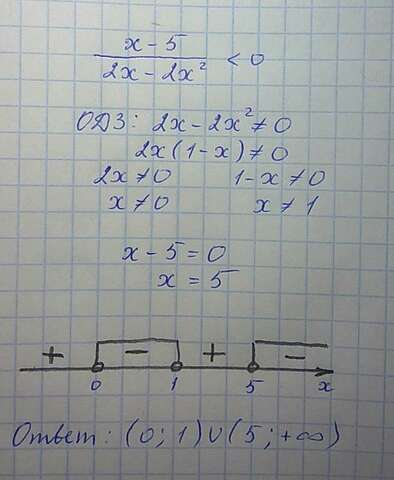 x - 5
2x - 2x² < 0
ОДЗ: 2x - 2x² ≠ 0
2x(1 - x) ≠ 0
2x ≠ 0 1 - x ≠ 0
x ≠ 0 x ≠ 1
x - 5 = 0
x = 5
+ - + -
0 1 5 x
Ответ: (0; 1) ∪ (5; +∞)